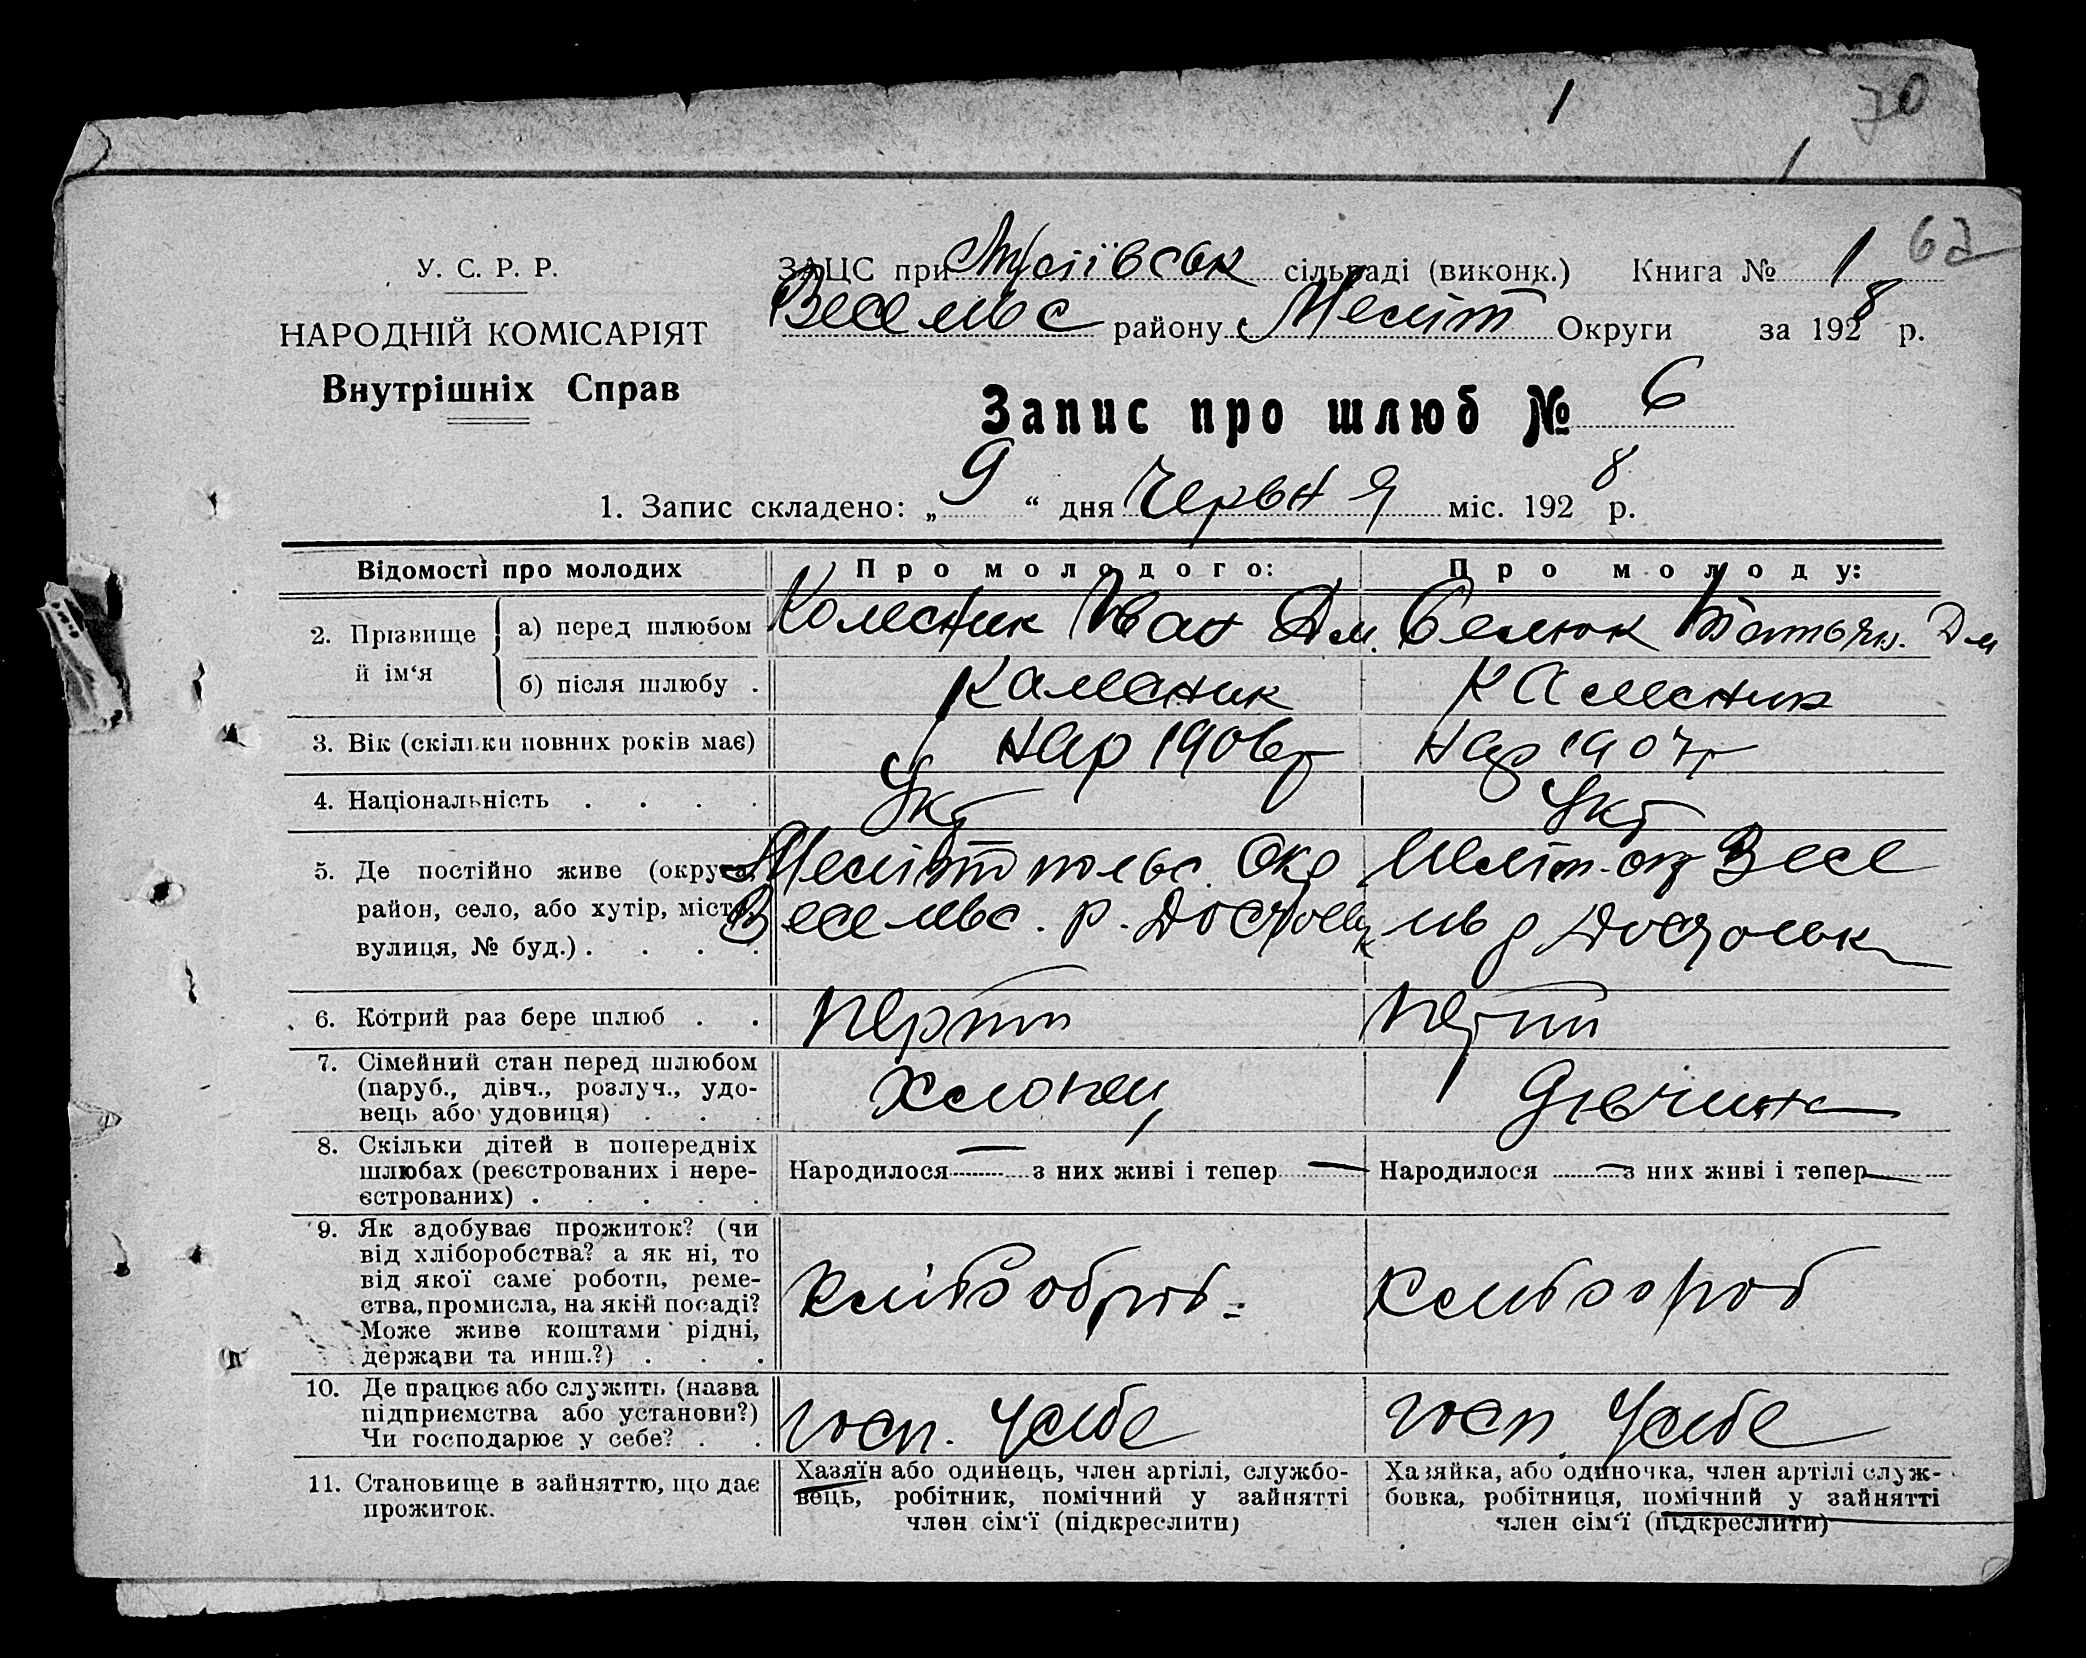 70
62
У. С. Р. Р.
НАРОДНІЙ КОМІСАРІЯТ
Внутрішніх Справ
ЗАЦС при сільраді (виконк.) Книга № 1
Весельс району Меліт Округи за 1928 р.
Запис про шлюб № 6
1. Запис складено: „9“ дня Червня міс. 1928 р.
Відомості про молодих Про молодого: Про молоду:
2. Прізвище й ім‘я
а) перед шлюбом Колесник Иван Дм. Селюк Татьян. Дм
б) після шлюбу . Калесник Калесник
3. Вік (скільки повних років має) нар 1906р нар 1907р
4. Національність . . . . Укр Укр
5. Де постійно живе (округа, Мелітопольс. Окр Меліт. окр Весе
район, село, або хутір, місто, Весельс. р. ль р
вулиця, № буд.) . . . .
6. Котрий раз бере шлюб . .
7. Сімейний стан перед шлюбом
(паруб., дівч., розлуч., удо-
вець або удовиця) . . . Хлопец Дівчина
8. Скільки дітей в попередніх
шлюбах (реєстрованих і нере- Народилося — з них живі і тепер — Народилося — з них живі і тепер —
єстрованих) . . . . .
9. Як здобуває прожиток? (чи
від хліборобства? а як ні, то
від якої саме роботи, реме-
ства, промисла, на якій посаді?
Може живе коштами рідні,
держави та инш.?) . . .
10. Де працює або служить (назва
підприємства або установи?)
Чи господарює у себе? . . госп. Усебе госп. Усебе
11. Становище в зайняттю, що дає
прожиток.
Хазяїн або одинець, член артілі, службо-
вець, робітник, помічний у зайнятті
член сім‘ї (підкреслити)
Хазяйка, або одиночка, член артілі служ-
бовка, робітниця, помічний у зайнятті
член сім‘ї (підкреслити)